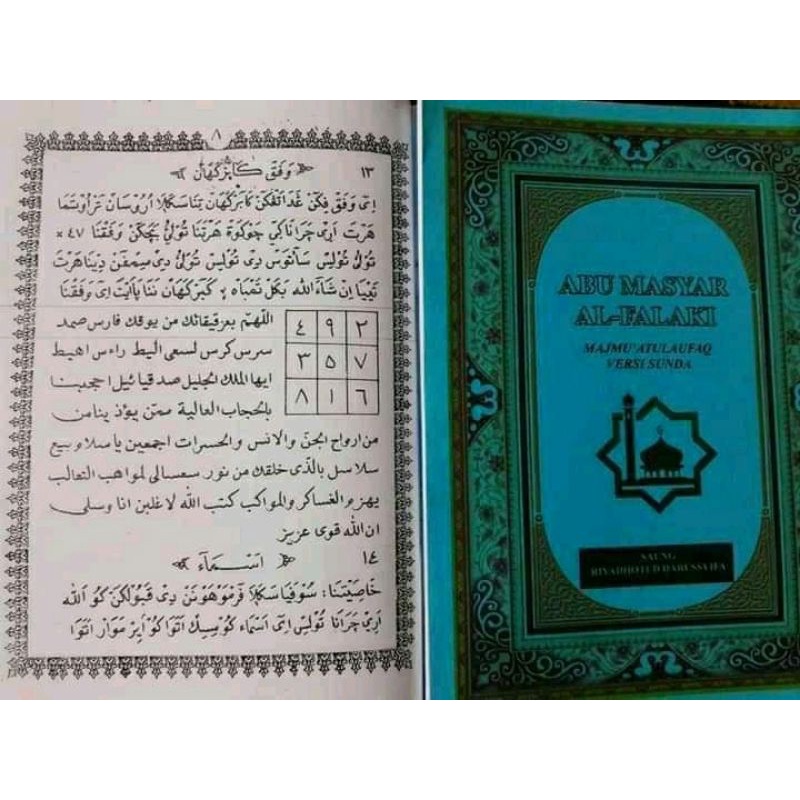 ٨
١٣ وَفَقْ كَابَرْكَهَانْ
اِيْ وَفَقْ فِكَنْ غَدَاتَڠْكَنْ كَابَرْكَهَانْ تِنَاسَكَلَا اُرُوسَانْ تَرْاُوتَمَا
هَرْتَ اَرِيْ چَرَانَاكِيْ چَوْكَوَةْ هَرْتَنَا تُوْلِيْ بَچَكَنْ وَفَقْنَا ٤٧ ×
تُوْلِيْ تُوْلِيْسْ سَاْنُوسْ دِيْ تُوْلِيْسْ تُوْلِيْ دِيْ سِيْمْفَنْ دِيْنَاهَرْتَ
اِنْ شَآءَ اللّٰه بَكَلْ نَمْبَاهْ
٢ ٩ ٤
٧ ٥ ٣
٦ ١ ٨
اللّٰهمّ بعزقياتك من يوقك فارس صمد
سرس كرس لسعى اليط راءس اهيط
ايها الملك الجليل صد قيائيل احجبنا
بالحجاب العالية ممّن يؤذينا من
من ارواح الجنّ والانس والحسرات اجمعين يا سلاوبيع
سلاسل بالذى خلقك من نور سعسالى لمواهب الثعالب
يهز والغساكر والمواكب كتب الله لاغلبن انا وسلى
ان الله قوى عزيز
١٤ اَسْمَآءْ
خَاصِيَتْنَا: سُوْفَيَا سَكَلَا فَرْمُوْهُوْنَنْ دِيْ قَبُوْلْكَنْ كُوْ اللّٰه
اَرِيْ چَرَانَا تُوْلِيْسْ اِيْ اَسْمَاءْ كُوْ مِسِيْكْ اَتَوَا كُوْ اَيَرْ مَوَارْ اَتَوَا
ABU MASYAR
AL-FALAKI
MAJMU'ATULAUFAQ
VERSI SUNDA
SAUNG
RIYADHOTUD DARUSSYIFA